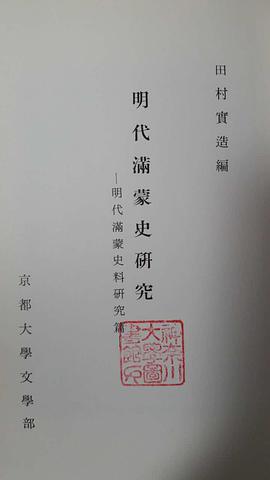 田村實造編
明代滿蒙史研究
―明代滿蒙史料研究篇
京都大學文學部
神奈川
大學圖
書館印